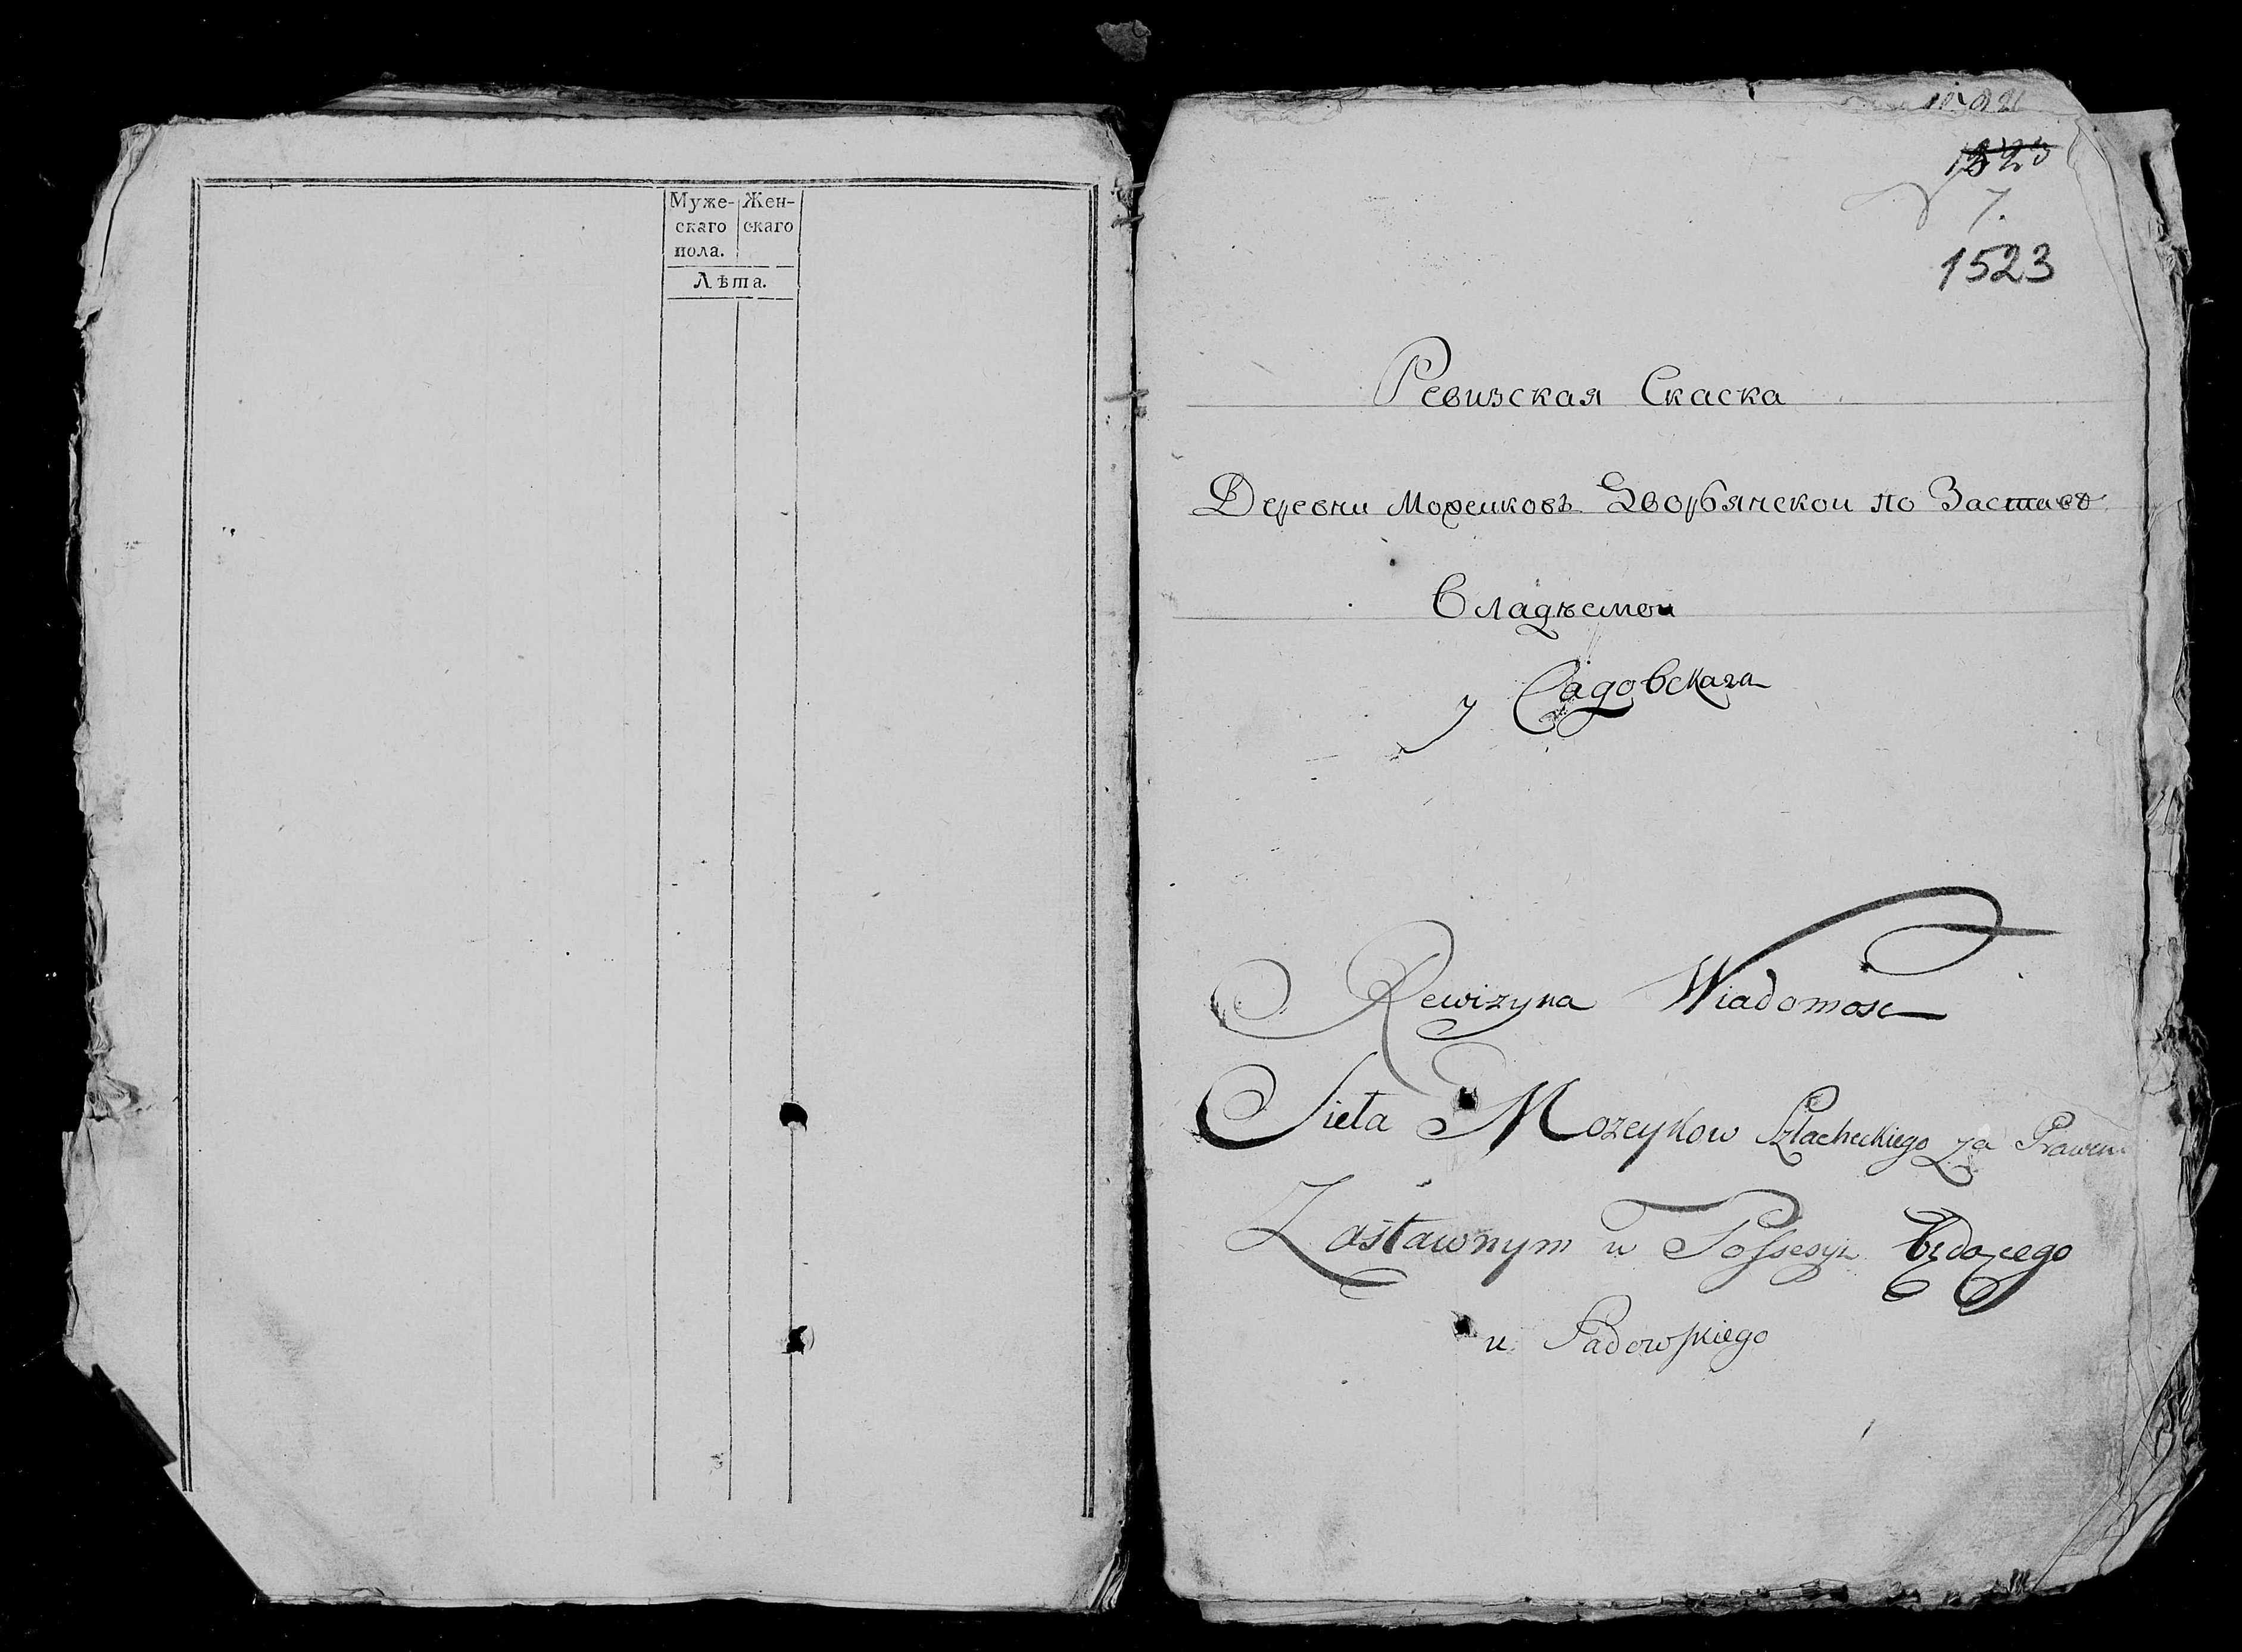 Муже- Жен-
скаго скаго
пола.
Лѣта.
1523
7.
1523
Ревизская Скаска
Деревни Можеиковъ Дворянскои по Заставѣ
Владѣемои
у Садовскага
Rewizyna Wiadomosc
Sieła Mozeykow Szlacheckiego za Prawem
Zastawnym w Possesyi będącego
u Sadowskiego